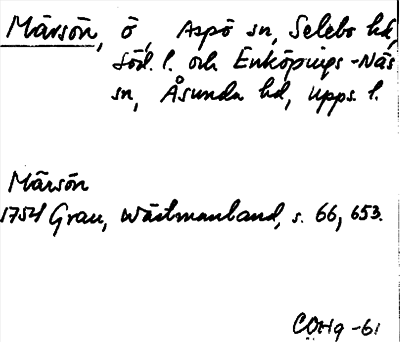 Märsön, ö, Aspö sn, Selebo hd,
Söd. l. och Enköpings-Näs
sn, Åsunda hd, Upps. l.
Märsön
1754 Grau, Wästmanland, s. 66, 653.
COHg -61